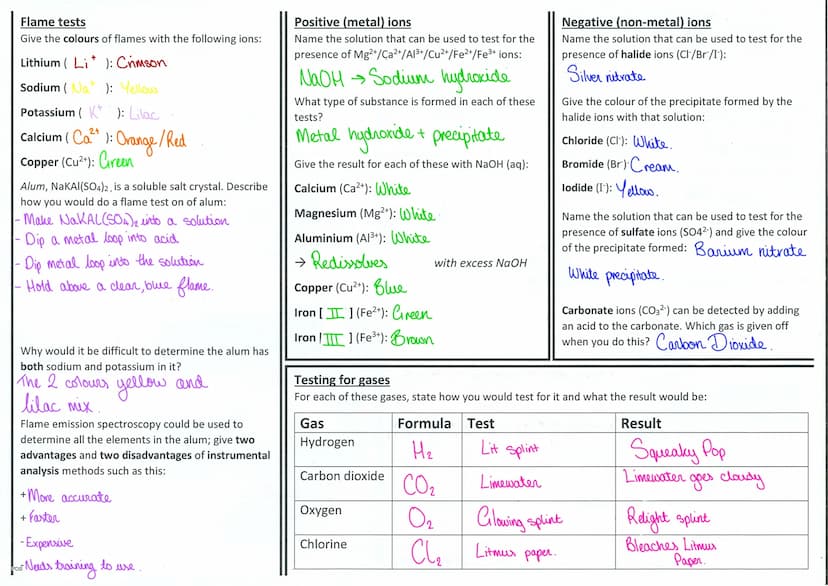 Flame tests
Give the colours of flames with the following ions:
Lithium ( Li⁺ ): Crimson
Sodium ( Na⁺ ): Yellow
Potassium ( K⁺ ): Lilac
Calcium ( Ca²⁺ ): Orange/Red
Copper (Cu²⁺): Green
Alum, NaKAl(SO₄)₂, is a soluble salt crystal. Describe
how you would do a flame test on of alum:
- Make NaKAL(SO₄)₂ into a solution
- Dip a metal loop into acid
- Dip metal loop into the solution
- Hold above a clear, blue flame.
Why would it be difficult to determine the alum has
both sodium and potassium in it?
The 2 colours yellow and
lilac mix.
Flame emission spectroscopy could be used to
determine all the elements in the alum; give two
advantages and two disadvantages of instrumental
analysis methods such as this:
+ More accurate
+ Faster
- Expensive
- Needs training to use.
Positive (metal) ions
Name the solution that can be used to test for the
presence of Mg²⁺/Ca²⁺/Al³⁺/Cu²⁺/Fe²⁺/Fe³⁺ ions:
NaOH → Sodium hydroxide
What type of substance is formed in each of these
tests?
Metal hydroxide + precipitate
Give the result for each of these with NaOH (aq):
Calcium (Ca²⁺): White
Magnesium (Mg²⁺): White
Aluminium (Al³⁺): White
→ Redissolves with excess NaOH
Copper (Cu²⁺): Blue
Iron [ II ] (Fe²⁺): Green
Iron [ III ] (Fe³⁺): Brown
Negative (non-metal) ions
Name the solution that can be used to test for the
presence of halide ions (Cl⁻/Br⁻/I⁻):
Silver nitrate
Give the colour of the precipitate formed by the
halide ions with that solution:
Chloride (Cl⁻): White.
Bromide (Br⁻) Cream.
Iodide (I⁻): Yellow.
Name the solution that can be used to test for the
presence of sulfate ions (SO4²⁻) and give the colour
of the precipitate formed: Barium nitrate
White precipitate.
Carbonate ions (CO₃²⁻) can be detected by adding
an acid to the carbonate. Which gas is given off
when you do this? Carbon Dioxide.
Testing for gases
For each of these gases, state how you would test for it and what the result would be:
Gas Formula Test Result
Hydrogen H₂ Lit splint Squeaky Pop
Carbon dioxide CO₂ Limewater Limewater goes cloudy
Oxygen O₂ Glowing splint Relight splint
Chlorine Cl₂ Litmus paper. Bleaches Litmus
Paper.